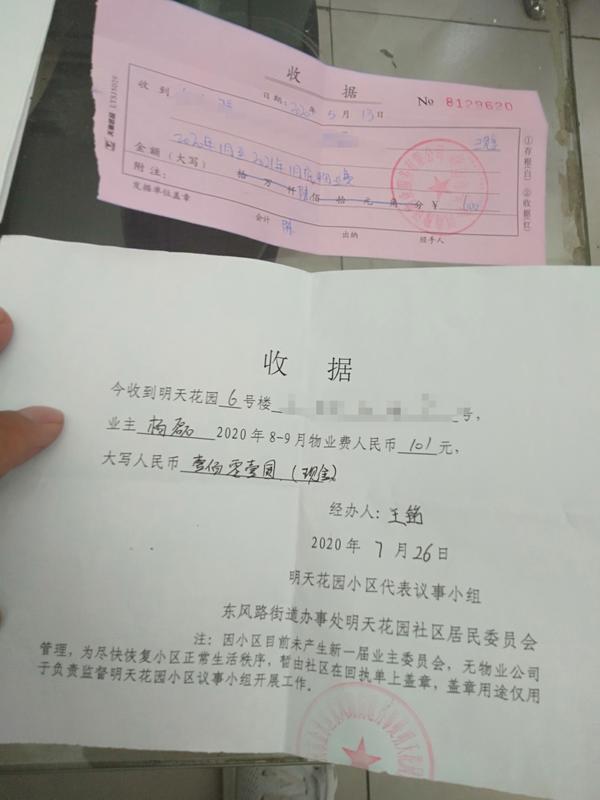 收 据
收到
日期: 2020年5月13日
No 8129620
2020年1月至2021年1月房物业费
金额(大写) 拾 万 仟 陆 佰 拾 元 角 分 ¥ 600
附注:
发据单位盖章
会计
出纳
经手人
①存根(白) ②收据(红)
收 据
今收到明天花园 6 号楼 号,
业主 杨磊 2020年8-9月物业费人民币 101 元,
大写人民币 壹佰零壹圆.(现金)
经办人: 王铭
2020年 7 月 26 日
明天花园小区代表议事小组
东风路街道办事处明天花园社区居民委员会
注: 因小区目前未产生新一届业主委员会, 无物业公司
管理, 为尽快恢复小区正常生活秩序, 暂由社区在回执单上盖章, 盖章用途仅用
于负责监督明天花园小区议事小组开展工作。